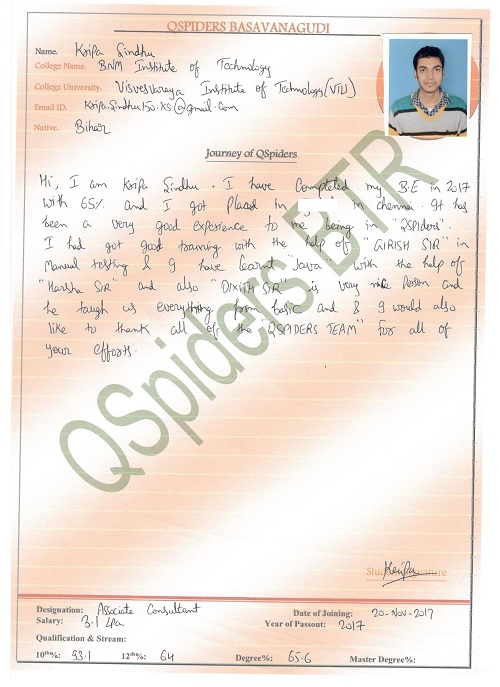 QSPIDERS BASAVANAGUDI
Name. Kripa Sindhu
College Name. BNM Institute of Technology
College University. Visvesvaraya Institute of Technology (VTU)
Email ID. Kripa.Sindhu150.KS@gmail.com
Native. Bihar
Journey of QSpiders
Hi, I am Kripa Sindhu. I have Completed my B.E in 2017
with 65%. and I got Placed in in chennai. It has
been a very good experience to me being in "QSPiders".
I had got good training with the help of "GIRISH SIR" in
Manual testing & I have learnt "Java" with the help of
"Harsha SIR" and also "DIXITH SIR" is very nice Person and
he taugh us everything from basic and & I would also
like to thank all of the "QSPIDERS TEAM" for all of
your efforts.
QSpiders BTR
Kripa
Student Signature
Designation: Associate Consultant
Date of Joining: 20-NOV-2017
Salary: 3.1 Lpa
Year of Passout: 2017
Qualification & Stream:
10th%: 93.1 12th%: 64 Degree%: 65.6 Master Degree%: